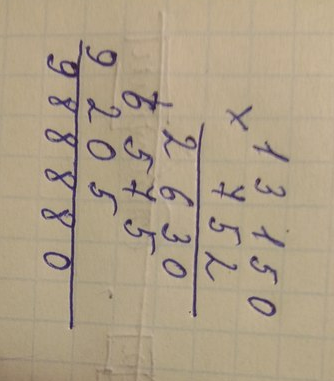 × 13150
752
2630
6575
9205
988880